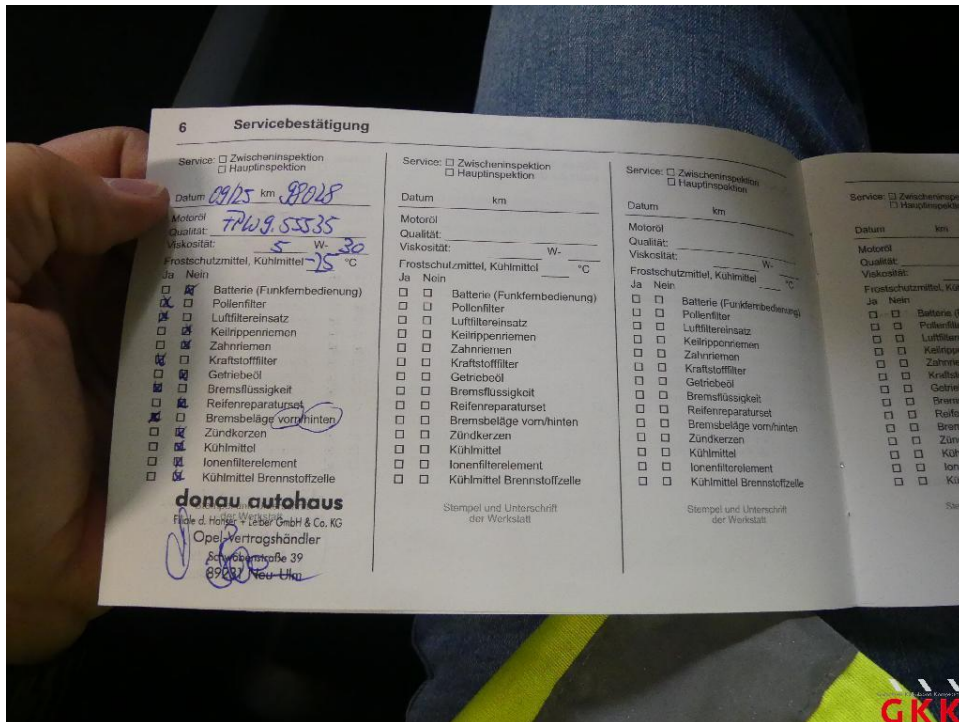 6 Servicebestätigung
Service: ☐ Zwischeninspektion
☐ Hauptinspektion
Datum 09/25 km 98028
Motoröl
Qualität:
Viskosität: 5 W- 30
Frostschutzmittel, Kühlmittel -25 °C
Ja Nein
Batterie (Funkfernbedienung)
Pollenfilter
Luftfiltereinsatz
Keilrippenriemen
Zahnriemen
Kraftstofffilter
Getriebeöl
Bremsflüssigkeit
Reifenreparaturset
Bremsbeläge vorn/hinten
Zündkerzen
Kühlmittel
Ionenfilterelement
Kühlmittel Brennstoffzelle
donau autohaus
Stempel und Unterschrift
der Werkstatt
Filiale d. + Leiber GmbH & Co. KG
Opel-Vertragshändler
39
Neu-Ulm
Service: ☐ Zwischeninspektion
☐ Hauptinspektion
Datum km
Motoröl
Qualität:
Viskosität: W-
Frostschutzmittel, Kühlmittel °C
Ja Nein
☐ ☐ Batterie (Funkfernbedienung)
☐ ☐ Pollenfilter
☐ ☐ Luftfiltereinsatz
☐ ☐ Keilrippenriemen
☐ ☐ Zahnriemen
☐ ☐ Kraftstofffilter
☐ ☐ Getriebeöl
☐ ☐ Bremsflüssigkeit
☐ ☐ Reifenreparaturset
☐ ☐ Bremsbeläge vorn/hinten
☐ ☐ Zündkerzen
☐ ☐ Kühlmittel
☐ ☐ Ionenfilterelement
☐ ☐ Kühlmittel Brennstoffzelle
Stempel und Unterschrift
der Werkstatt
Service: ☐ Zwischeninspektion
☐ Hauptinspektion
Datum km
Motoröl
Qualität:
Viskosität: W-
Frostschutzmittel, Kühlmittel °C
Ja Nein
☐ ☐ Batterie (Funkfernbedienung)
☐ ☐ Pollenfilter
☐ ☐ Luftfiltereinsatz
☐ ☐ Keilrippenriemen
☐ ☐ Zahnriemen
☐ ☐ Kraftstofffilter
☐ ☐ Getriebeöl
☐ ☐ Bremsflüssigkeit
☐ ☐ Reifenreparaturset
☐ ☐ Bremsbeläge vorn/hinten
☐ ☐ Zündkerzen
☐ ☐ Kühlmittel
☐ ☐ Ionenfilterelement
☐ ☐ Kühlmittel Brennstoffzelle
Stempel und Unterschrift
der Werkstatt
Service: ☐
☐
Datum km
Motoröl
Qualität:
Viskosität:
Ja Nein
GKK